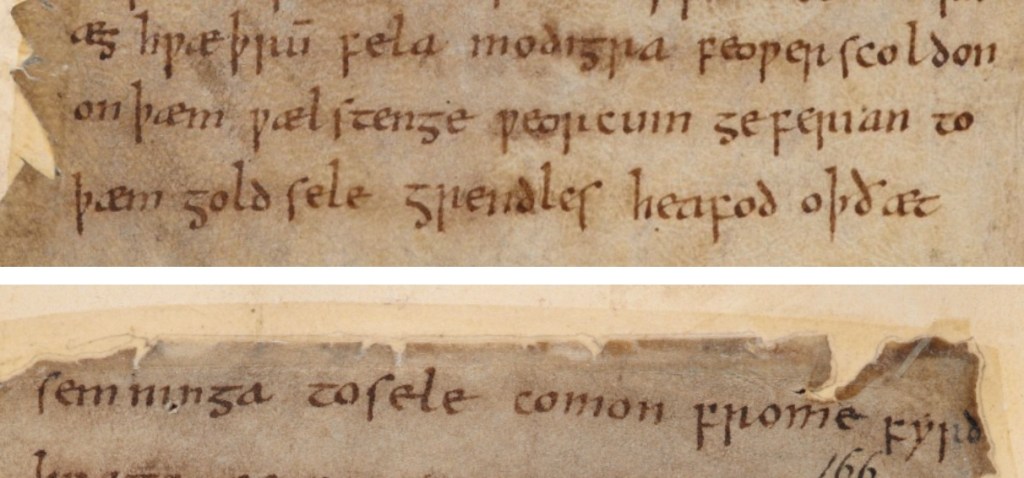 æg hƿæþrū fela modigra feoƿer scoldon
on þæm ƿæl stenge ƿeorcum geferian to
þæm gold sele grendles heafod oþðæt
semninga to sele comon frome fyrd
166